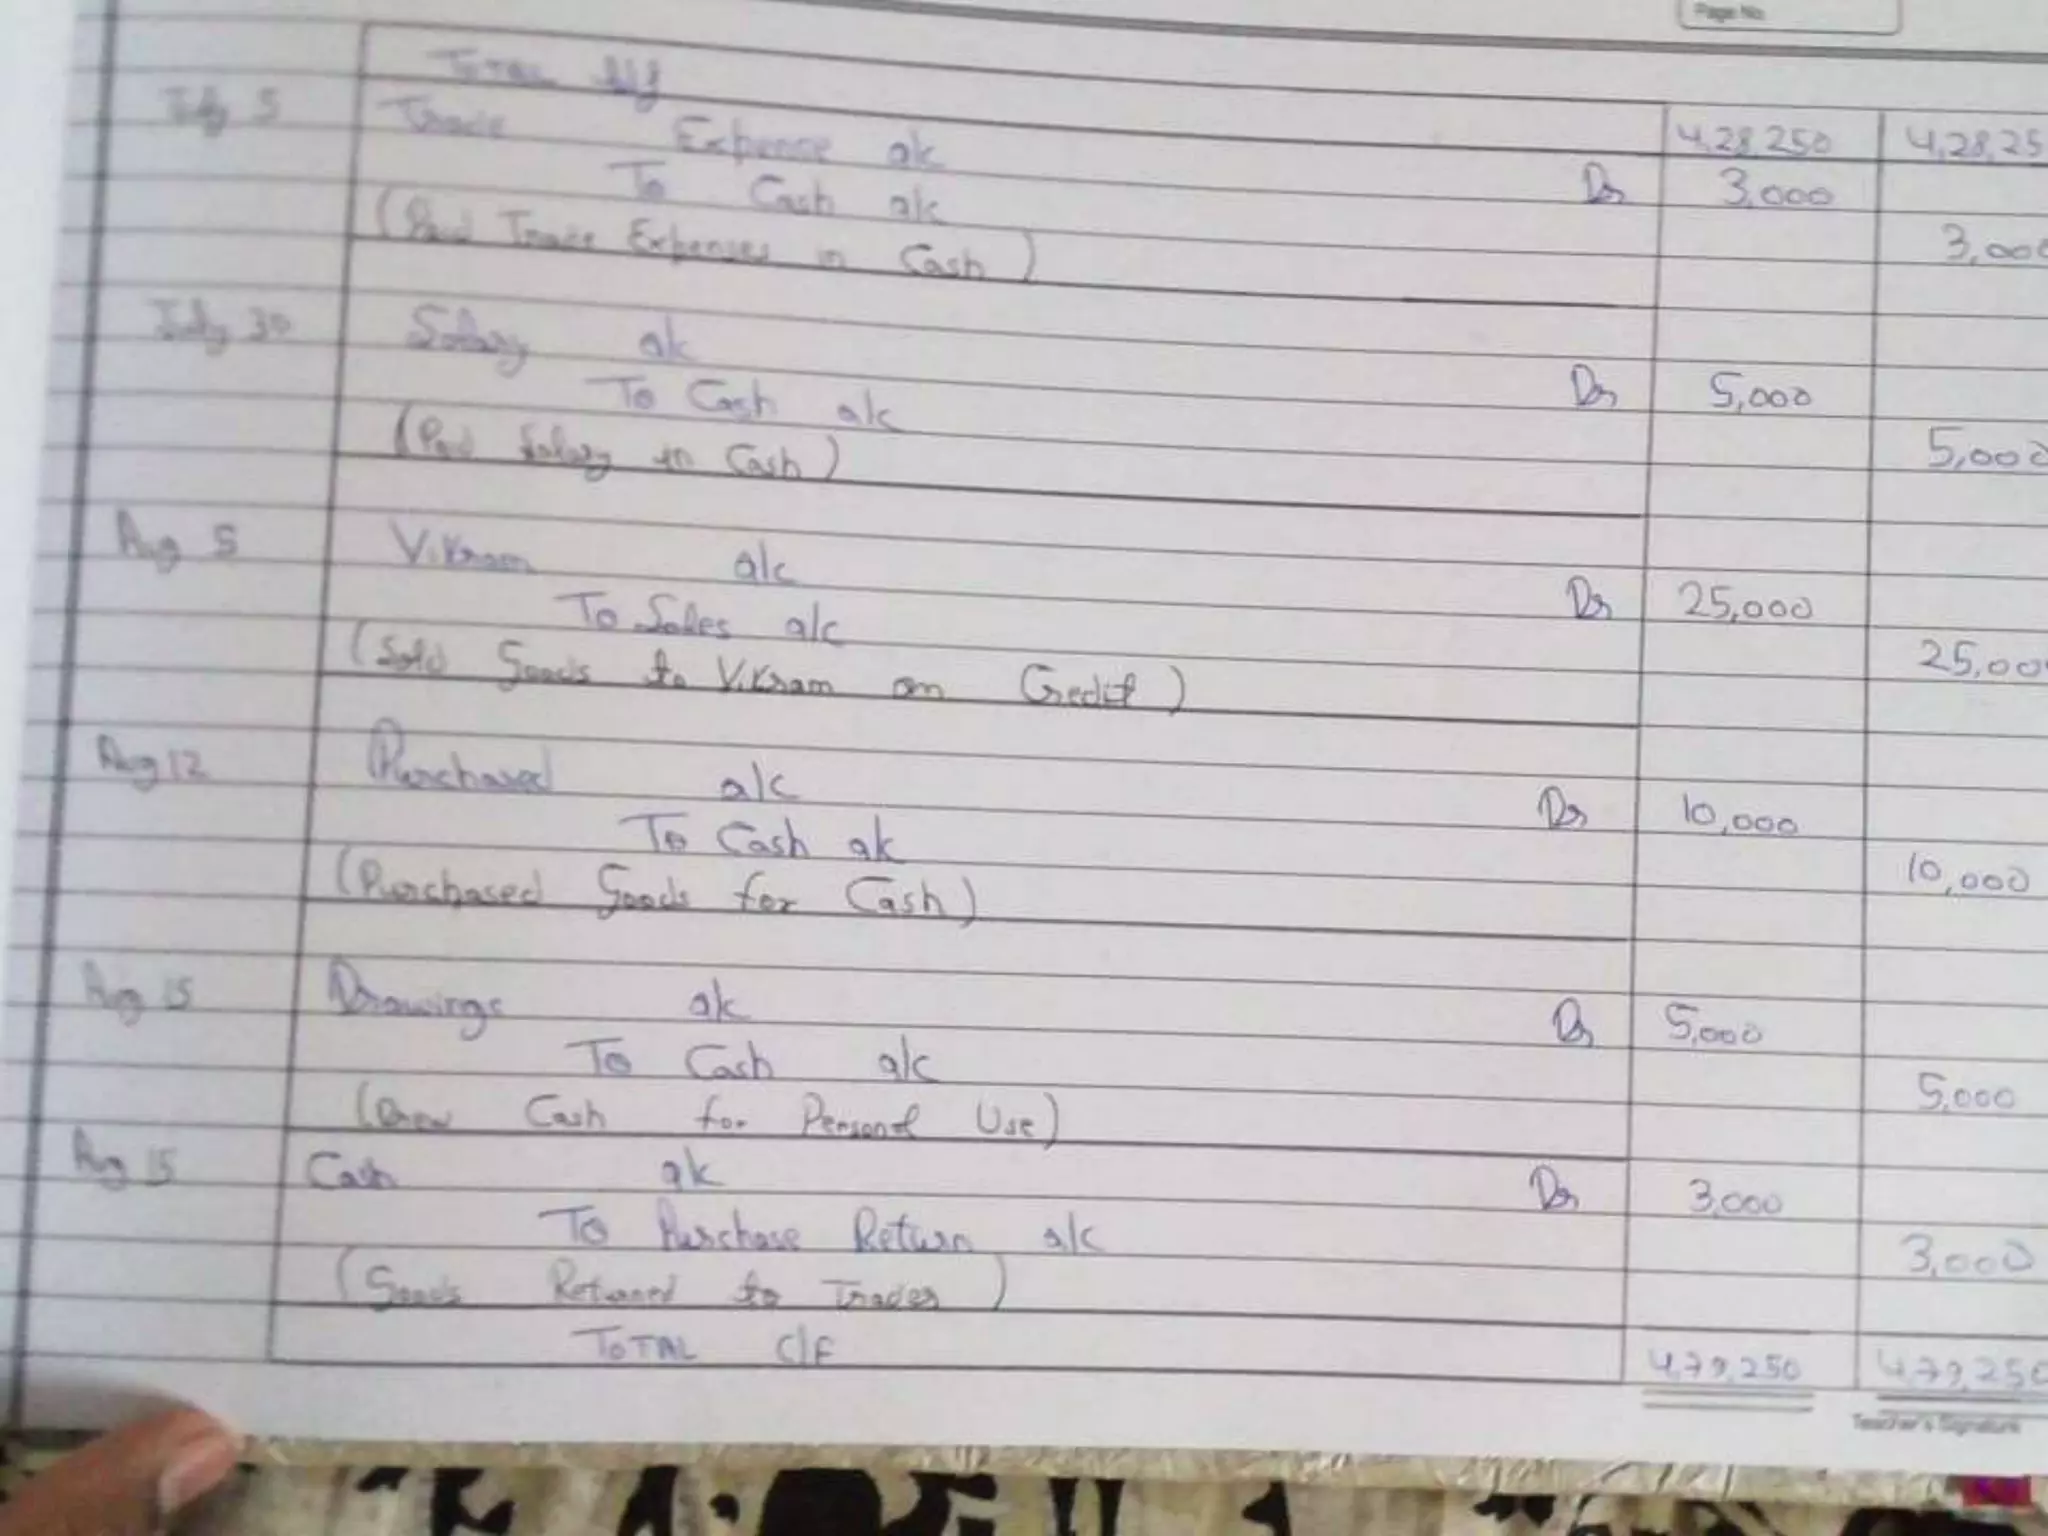 Page No.
TOTAL b/f 4,28,250 4,28,25
July 5 Trade Expense a/c Dr 3,000
To Cash a/c 3,000
(Paid Trade Expenses in Cash)
July 30 Salary a/c Dr 5,000
To Cash a/c 5,000
(Paid Salary in Cash)
Aug 5 Vikram a/c Dr 25,000
To Sales a/c 25,00
(Sold Goods to Vikram on Credit)
Aug 12 Purchased a/c Dr 10,000
To Cash a/c 10,000
(Purchased Goods for Cash)
Aug 15 Drawings a/c Dr 5,000
To Cash a/c 5,000
(Drew Cash for Personal Use)
Aug 15 Cash a/c Dr 3,000
To Purchase Return a/c 3,000
(Goods Returned to Trader)
TOTAL C/F 4,79,250 4,79,250
Teacher's Signature